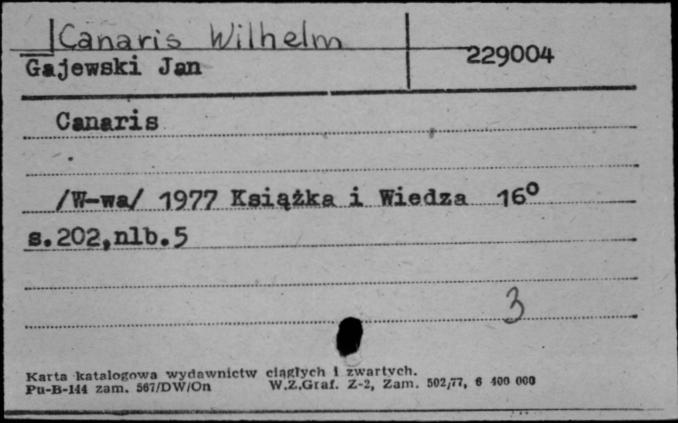 Canaris Wilhelm
Gajewski Jan 229004
Canaris
/W-wa/ 1977 Książka i Wiedza 16°
s.202,nlb.5
3
Karta katalogowa wydawnictw ciągłych i zwartych.
Pu-B-144 zam. 567/DW/On W.Z.Graf. Z-2, Zam. 502/77, 6 400 000